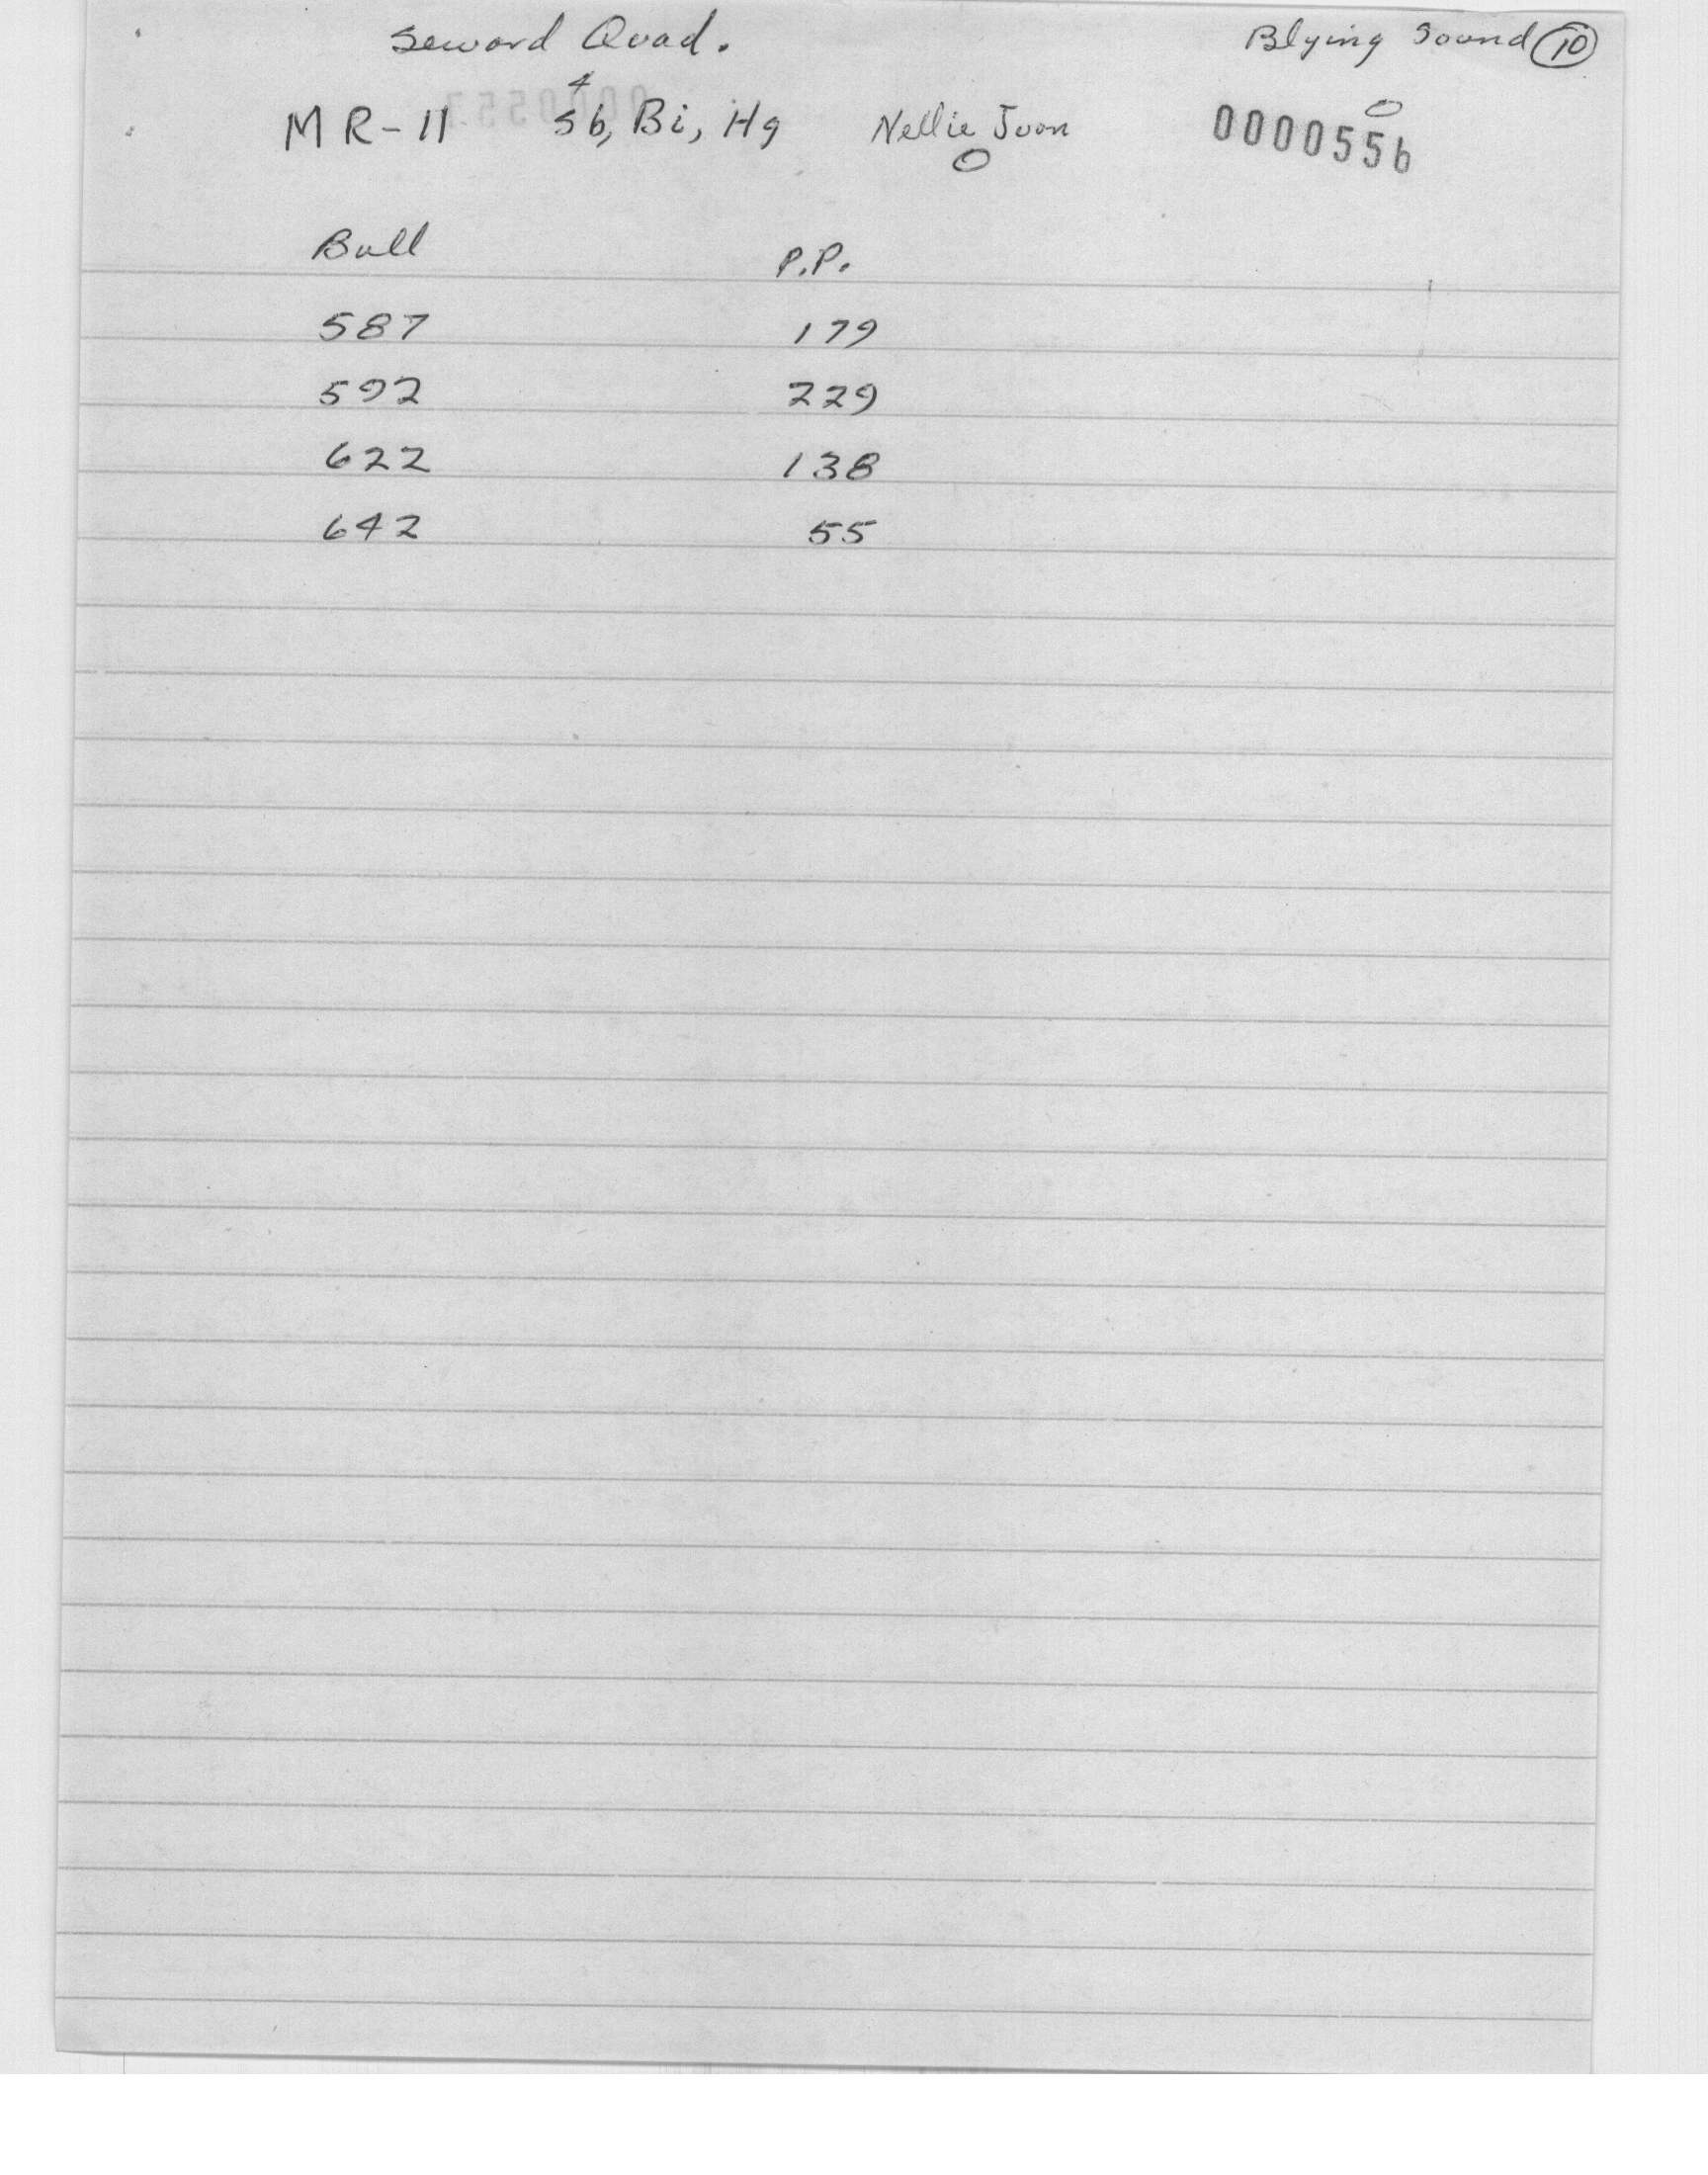 Seward Quad. Blying Sound 10
4 0
MR-11 Sb, Bi, Hg Nellie Juan 0000556
0
Bull P.P.
587 179
592 229
622 138
642 55